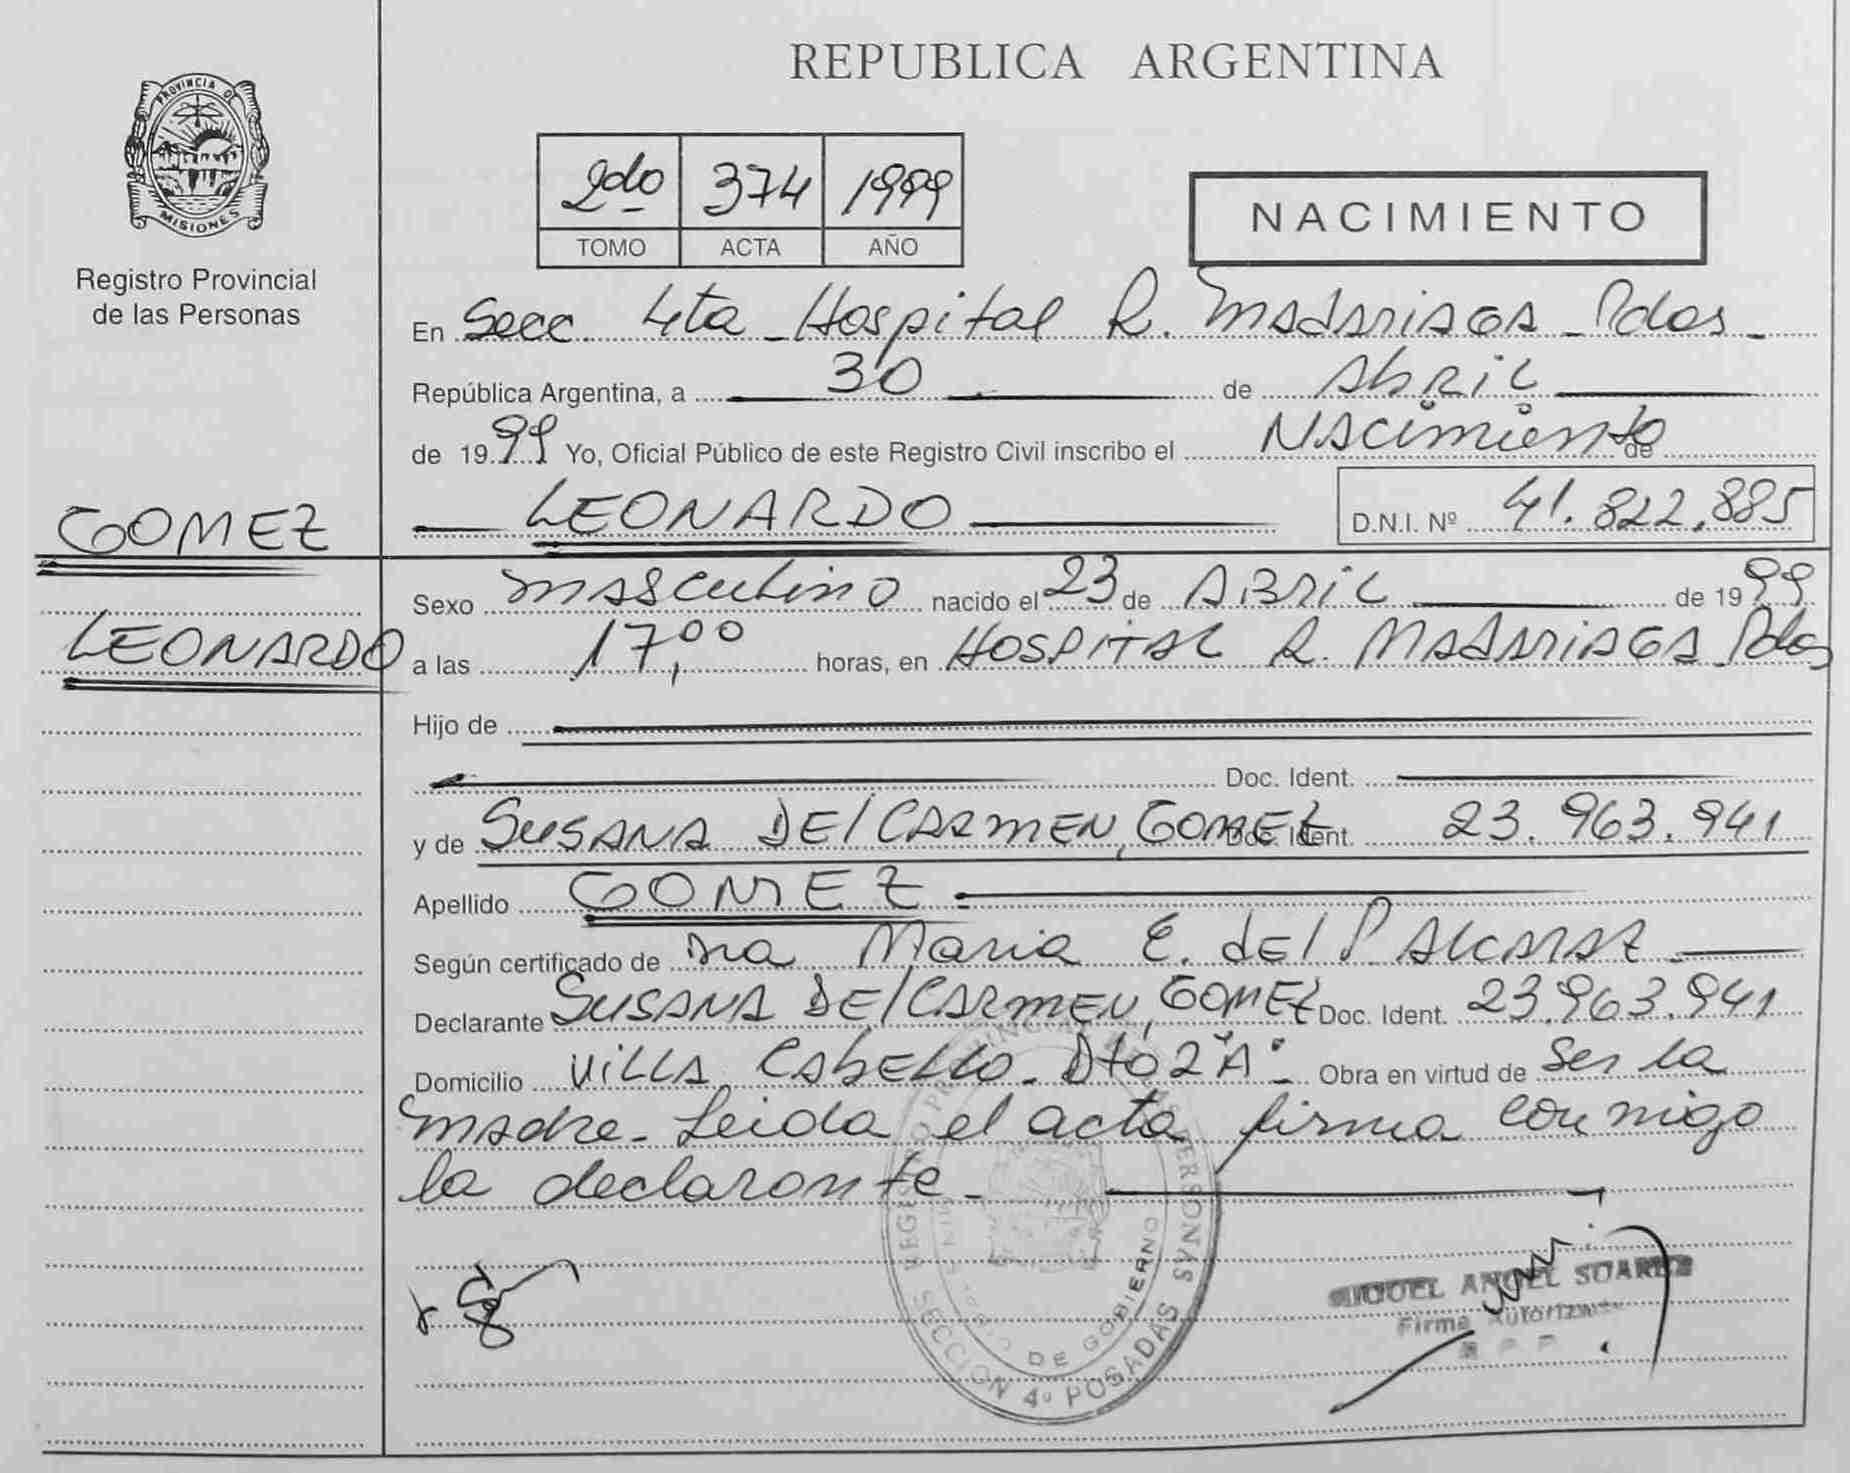 REPUBLICA ARGENTINA
PROVINCIA DE
MISIONES
Registro Provincial
de las Personas
2do 374 1999
TOMO ACTA AÑO
NACIMIENTO
En Secc. 4ta - Hospital R. Madariaga - Pdas -
República Argentina, a 30 de Abril
de 1999 Yo, Oficial Público de este Registro Civil inscribo el Nacimiento de
GOMEZ
LEONARDO
LEONARDO D.N.I. Nº 41.822.885
Sexo masculino nacido el 23 de ABRIL de 1999
a las 17,00 horas, en HOSPITAL R. MADARIAGA Pdas
Hijo de
Doc. Ident.
y de SUSANA DEL CARMEN, GOMEZ Doc. Ident. 23.963.941
Apellido GOMEZ
Según certificado de Dra Maria E. del P. Alcaraz
Declarante SUSANA DEL CARMEN, GOMEZ Doc. Ident. 23.963.941
Domicilio Villa Cabello - Dto 2 "A" - Obra en virtud de Ser la
madre - Leida el acta firma conmigo
la declarante -
REGISTRO PROVINCIAL DE LAS PERSONAS
DE GOBIERNO
SECCION 4º POSADAS
MIGUEL ANGEL SUAREZ
Firma Autorizada